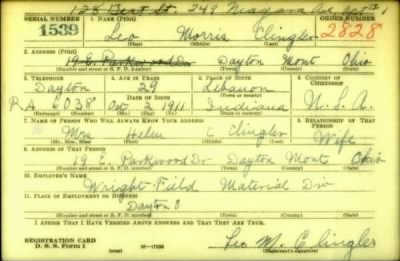 128 Best St. 249 Niagara Ave. Apt 1
SERIAL NUMBER 1. NAME (Print) ORDER NUMBER
1539 Leo Morris Clingler 2828
(First) (Middle) (Last)
2. ADDRESS (Print)
19 E. Parkwood Dr Dayton Mont Ohio
(Number and street or R. F. D. number) (Town) (County) (State)
3. TELEPHONE 4. AGE IN YEARS 5. PLACE OF BIRTH 6. COUNTRY OF CITIZENSHIP
Dayton 29 Lebanon
DATE OF BIRTH (Town or county)
RA 6038 Oct 2 1911 Indiana U. S. A.
(Exchange) (Number) (Mo.) (Day) (Yr.) (State or country)
7. NAME OF PERSON WHO WILL ALWAYS KNOW YOUR ADDRESS 8. RELATIONSHIP OF THAT PERSON
Mrs Helen C Clingler Wife
(Mr., Mrs., Miss) (First) (Middle) (Last)
9. ADDRESS OF THAT PERSON
19 E. Parkwood Dr Dayton Mont Ohio
(Number and street or R. F. D. number) (Town) (County) (State)
10. EMPLOYER'S NAME
Wright Field Material Div
11. PLACE OF EMPLOYMENT OR BUSINESS
Dayton O
(Number and street or R. F. D. number) (Town) (County) (State)
I AFFIRM THAT I HAVE VERIFIED ABOVE ANSWERS AND THAT THEY ARE TRUE.
REGISTRATION CARD
D. S. S. Form 1 16—17105 Leo M. Clingler